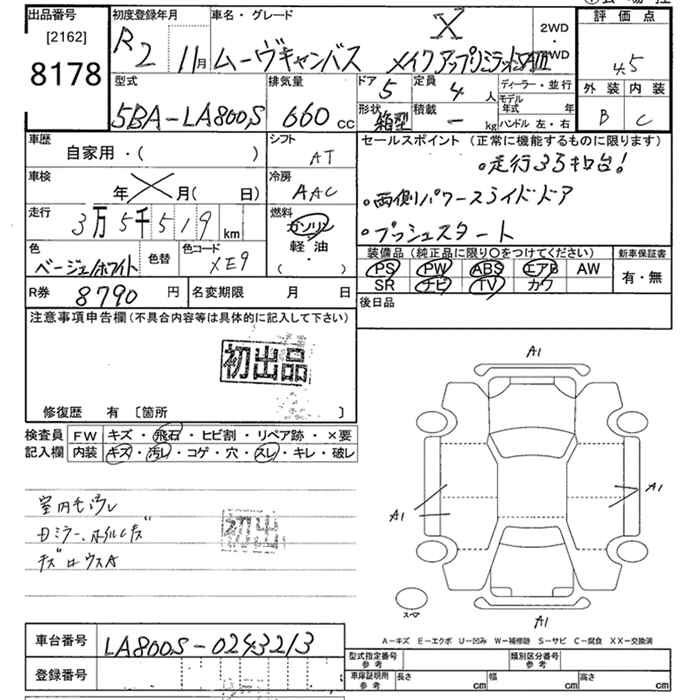 出品番号
[2162]
8178
初度登録年月
R2 11月
車名・グレード
X
ムーヴキャンバス メイクアップリミテッドSAIII
2WD
・WD
評価点
4.5
外装 内装
B C
型式
5BA-LA800S
排気量
660 cc
ドア 5
定員 4 人
ディーラー・並行
形状 箱型
積載 - kg
モデル年式 年
ハンドル 左・右
車歴
自家用・( )
シフト
AT
セールスポイント (正常に機能するものに限ります)
・走行35キロ台!
・両側パワースライドドア
・プッシュスタート
車検
年 月( 日)
冷房
AAC
走行
3万5千519 km
燃料
ガソリン
軽・油
( ・ )
色
ベージュ/ホワイト
色替
色コード
XE9
装備品 (純正品に限り○をつけてください)
PS PW ABS エアB AW
SR ナビ TV カワ
新車保証書
有・無
R券 8790 円
名変期限 月 日
後日品
注意事項申告欄(不具合内容等は具体的に記入して下さい)
初出品
修復歴 有 〔箇所 〕
検査員記入欄
FW キズ・飛石・ヒビ割・リペア跡・×要
内装 キズ・汚レ・コゲ・穴・スレ・キレ・破レ
初出
A1
A1
A1
A1
スペア
A-キズ E-エクボ U-凹み W-補修跡 S-サビ C-腐食 XX-交換済
車台番号
LA800S-0243213
登録番号
型式指定番号 参考
類別区分番号 参考
車庫証明用 参考
長さ cm
幅 cm
高さ cm